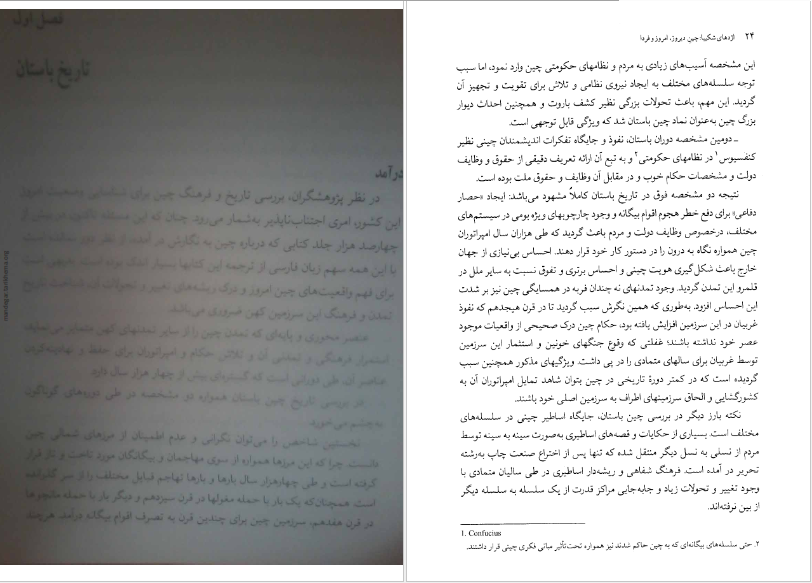 فصل اول
تاریخ باستان
درآمد
در نظر پژوهشگران، بررسی تاریخ و فرهنگ چین برای شناسایی وضعیت امروز
این کشور، امری اجتناب‌ناپذیر به‌شمار می‌رود چنان که این مسئله تاکنون در بیش از
چهارصد هزار جلد کتابی که درباره چین به نگارش در آمده، از نظر دور نداشته است
با این همه سهم زبان فارسی از ترجمه این کتابها بسیار اندک بوده است.
برای فهم واقعیت‌های چین امروز و درک ریشه‌های تغییر و تحولات آن شناخت تاریخ
تمدن و فرهنگ این سرزمین کهن ضروری می‌باشد.
عنصر محوری و پایه‌ای که تمدن چین را از سایر تمدنهای کهن متمایز می‌نماید،
استمرار فرهنگی و تمدنی آن و تلاش حکام و امپراتوران برای حفظ و نهادینه‌کردن
عناصر آن، طی دورانی است که گستره‌ای بیش از چهار هزار سال دارد.
در بررسی تاریخ چین باستان همواره دو مشخصه در طی دوره‌های گوناگون
به‌چشم می‌خورد.
نخستین شاخص را می‌توان نگرانی و عدم اطمینان از مرزهای شمالی چین
دانست. چرا که این مرزها همواره از سوی مهاجمان و بیگانگان مورد تاخت و تاز قرار
گرفته است و طی چهارهزار سال بارها و بارها تهاجم قبایل مختلف را از سر گذرانده
است همچنان‌که یک بار با حمله مغولها در قرن سیزدهم و دیگر بار با حمله منچورها
در قرن هفدهم، سرزمین چین برای چندین قرن به تصرف اقوام بیگانه درآمد. هرچند
۲۴ اژدهای شکیبا: چین دیروز، امروز و فردا
این مشخصه آسیب‌های زیادی به مردم و نظامهای حکومتی چین وارد نمود، اما سبب
توجه سلسله‌های مختلف به ایجاد نیروی نظامی و تلاش برای تقویت و تجهیز آن
گردید. این مهم، باعث تحولات بزرگی نظیر کشف باروت و همچنین احداث دیوار
بزرگ چین به‌عنوان نماد چین باستان شد که ویژگی قابل توجهی است.
ـ دومین مشخصه دوران باستان، نفوذ و جایگاه تفکرات اندیشمندان چینی نظیر
کنفسیوس۱ در نظامهای حکومتی۲ و به تبع آن ارائه تعریف دقیقی از حقوق و وظایف
دولت و مشخصات حکام خوب و در مقابل آن وظایف و حقوق ملت بوده است.
نتیجه دو مشخصه فوق در تاریخ باستان کاملاً مشهود می‌باشد: ایجاد «حصار
دفاعی» برای دفع خطر هجوم اقوام بیگانه و وجود چارچوبهای ویژه بومی در سیستم‌های
مختلف، درخصوص وظایف دولت و مردم باعث گردید که طی هزاران سال امپراتوران
چین همواره نگاه به درون را در دستور کار خود قرار دهند. احساس بی‌نیازی از جهان
خارج باعث شکل‌گیری هویت چینی و احساس برتری و تفوق نسبت به سایر ملل در
قلمرو این تمدن گردید. وجود تمدنهای نه چندان فربه در همسایگی چین نیز بر شدت
این احساس افزود. به‌طوری که همین نگرش سبب گردید تا در قرن هیجدهم که نفوذ
غربیان در این سرزمین افزایش یافته بود، حکام چین درک صحیحی از واقعیات موجود
عصر خود نداشته باشند؛ غفلتی که وقوع جنگهای خونین و استثمار این سرزمین
توسط غربیان برای سالهای متمادی را در پی داشت. ویژگیهای مذکور همچنین سبب
گردیده است که در کمتر دورهٔ تاریخی در چین بتوان شاهد تمایل امپراتوران آن به
کشورگشایی و الحاق سرزمینهای اطراف به سرزمین اصلی خود باشند.
نکته بارز دیگر در بررسی چین باستان، جایگاه اساطیر چینی در سلسله‌های
مختلف است. بسیاری از حکایات و قصه‌های اساطیری به‌صورت سینه به سینه توسط
مردم از نسلی به نسل دیگر منتقل شده که تنها پس از اختراع صنعت چاپ به‌رشته
تحریر در آمده است. فرهنگ شفاهی و ریشه‌دار اساطیری در طی سالیان متمادی با
وجود تغییر و تحولات زیاد و جابه‌جایی مراکز قدرت از یک سلسله به سلسله دیگر
از بین نرفته‌اند.
1. Confucius
۲. حتی سلسله‌های بیگانه‌ای که به چین حاکم شدند نیز همواره تحت‌تأثیر مبانی فکری چینی قرار داشتند.